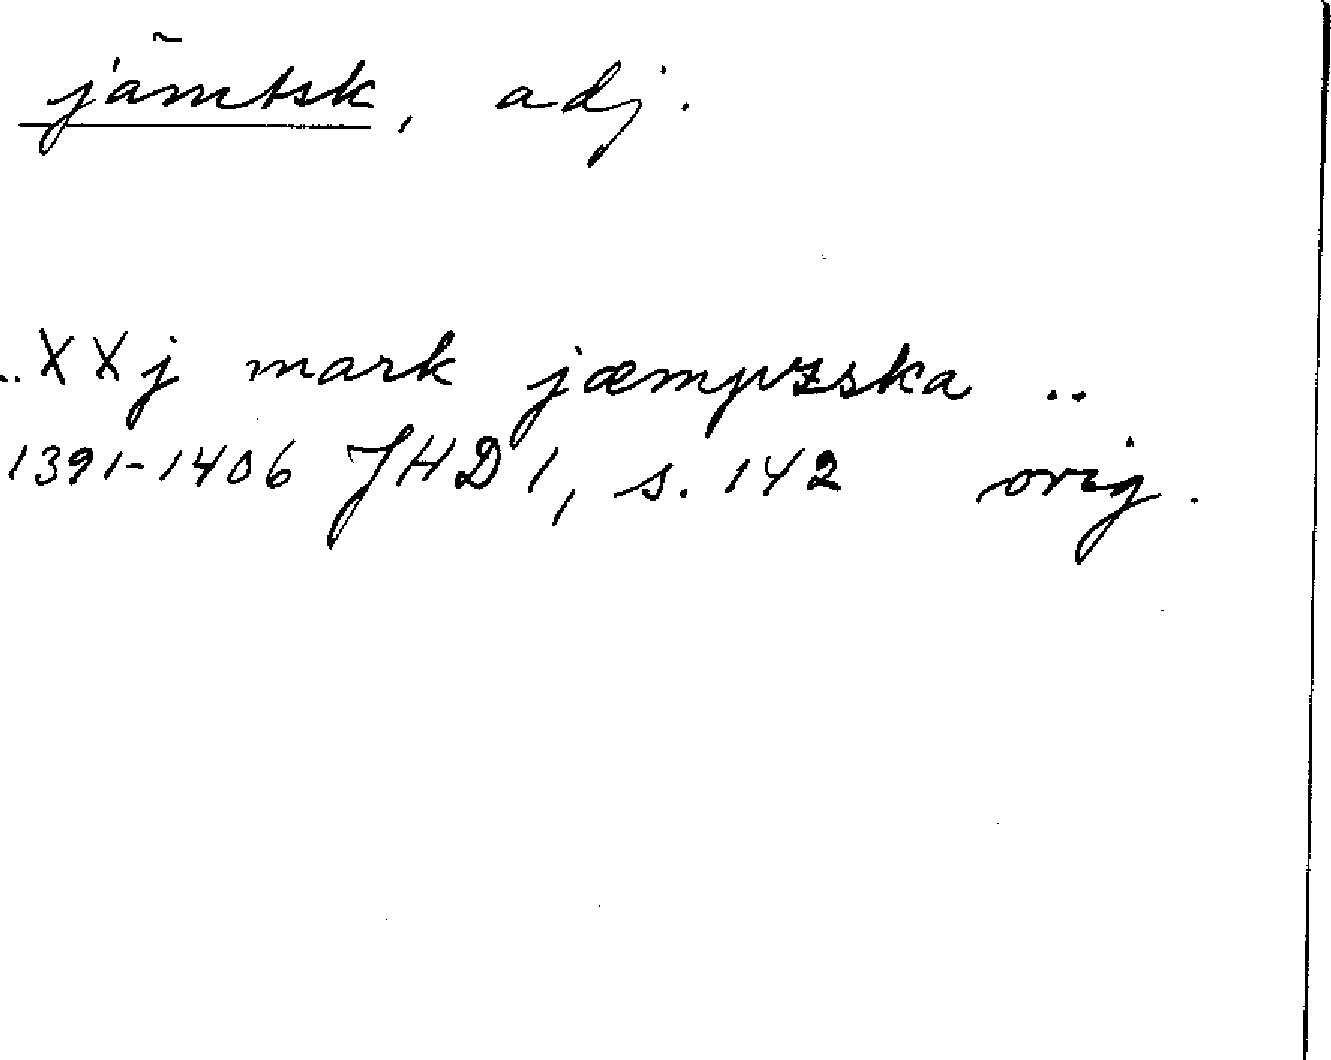 jämtsk, adj.
..XXj mark jæmpzska ..
1391-1406 JHD 1, s. 142 orig.